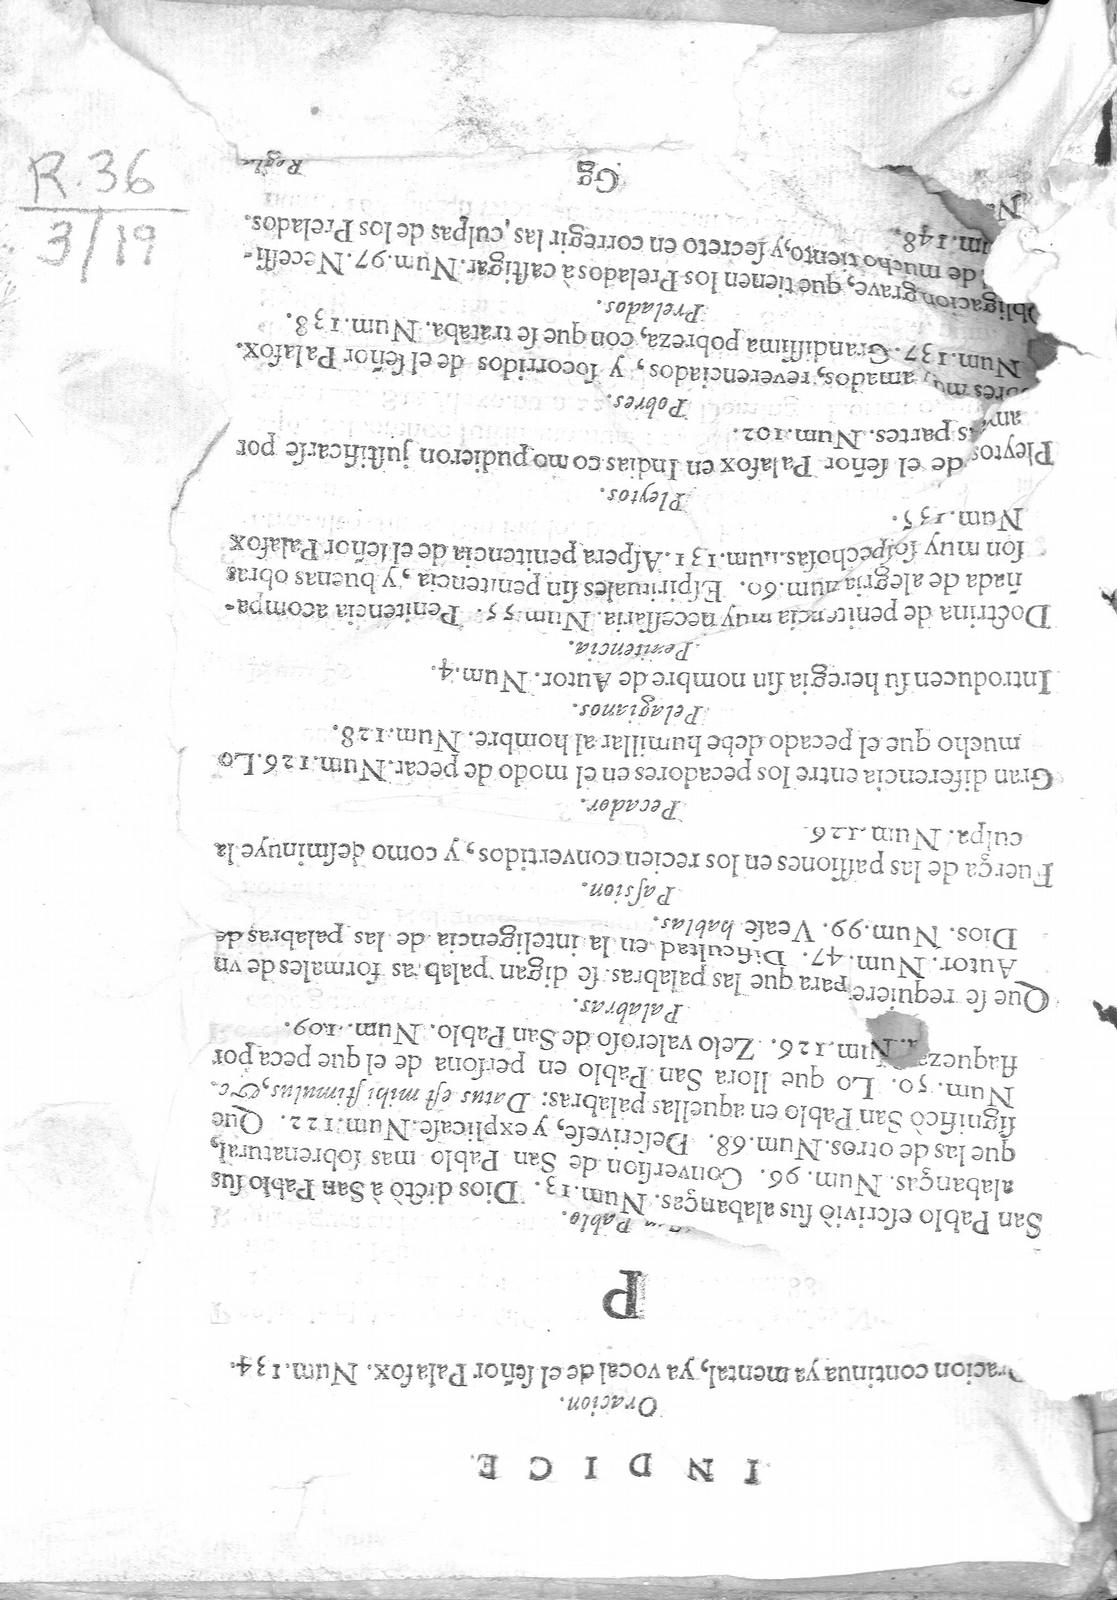 INDICE.
Oracion.
Oracion continua ya mental, ya vocal de el ſeñor Palafox. Num. 134.
P
San Pablo.
San Pablo eſcriviò ſus alabanças. Num. 13. Dios dictò à San Pablo ſus
alabanças. Num. 96. Converſion de San Pablo mas ſobrenatural,
que las de otros. Num. 68. Deſcriveſe, y explicaſe. Num. 122. Que
ſignificò San Pablo en aquellas palabras: Datus eſt mihi ſtimulus, &c.
Num. 50. Lo que llora San Pablo en perſona de el que peca por
flaqueza. Num. 126. Zelo valeroſo de San Pablo. Num. 109.
Palabras.
Que ſe requiere para que las palabras ſe digan palabras formales de vn
Autor. Num. 47. Dificultad en la inteligencia de las palabras de
Dios. Num. 99. Veaſe hablas.
Paſsion.
Fuerça de las paſſiones en los recien convertidos, y como deſminuye la
culpa. Num. 126.
Pecador.
Gran diferencia entre los pecadores en el modo de pecar. Num. 126. Lo
mucho que el pecado debe humillar al hombre. Num. 128.
Pelagianos.
Introducen ſu heregia ſin nombre de Autor. Num. 4.
Penitencia.
Doctrina de penitencia muy neceſſaria. Num. 55. Penitencia acompa-
ñada de alegria num. 60. Eſpirituales ſin penitencia, y buenas obras
ſon muy ſoſpechoſas. num. 131. Aſpera penitencia de el ſeñor Palafox
Num. 135.
Pleytos.
Pleytos de el ſeñor Palafox en Indias como pudieron juſtificarſe por
partes. Num. 102.
Pobres.
amados, reverenciados, y ſocorridos de el ſeñor Palafox.
Num. 137. Grandiſſima pobreza, con que ſe trataba. Num. 138.
Prelados.
Obligacion grave, que tienen los Prelados à caſtigar. Num. 97. Neceſſi-
de mucho tiento, y ſecreto en corregir las culpas de los Prelados.
148.
Gg
Regla
R. 36
3/19